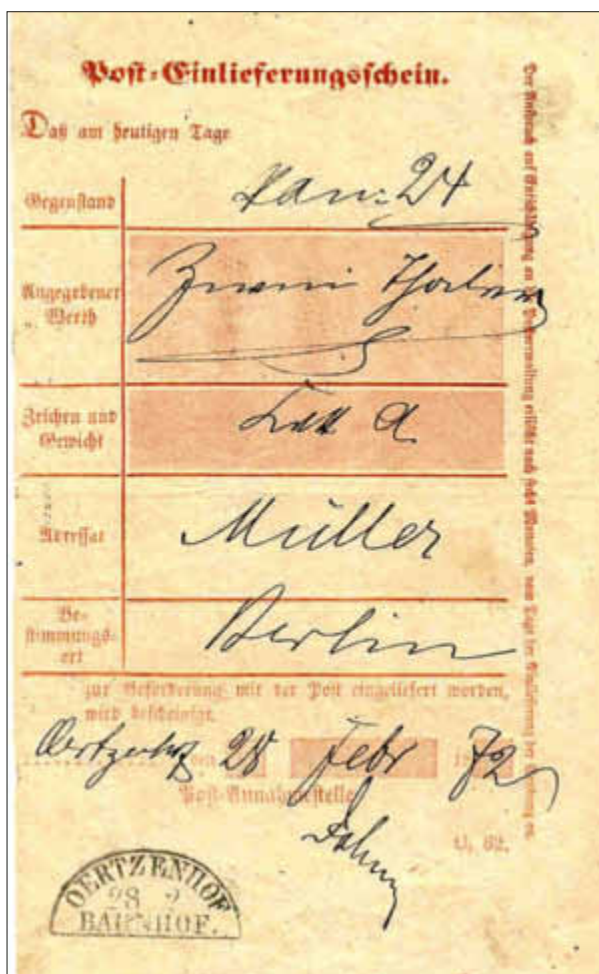 Post-Einlieferungsschein.
Daß am heutigen Tage
Gegenstand
24
Angegebener Werth
Zwei Thaler
Zeichen und Gewicht
Litt A
Adressat
Müller
Bestimmungsort
Berlin
zur Beförderung mit der Post eingeliefert worden,
wird bescheinigt.
Oertzenhof, den 28 Febr 1872
Post-Annahmestelle
C. 62.
OERTZENHOF
28 2
BAHNHOF.
Der Anspruch auf Entschädigung an die Postverwaltung erlischt nach sechs Monaten, vom Tage der Einlieferung der Sendung an.